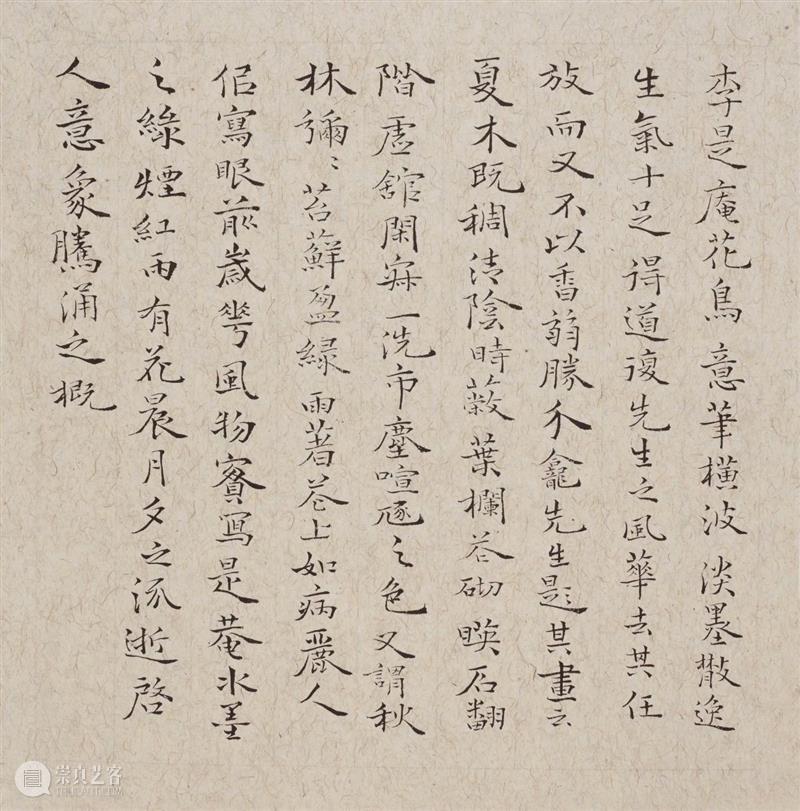 李是庵花鳥意筆橫波淡墨散逸
生氣十足得道復先生之風華去其任
放而又不以香弱勝介龕先生題其畫云
夏木既稠清陰時蔽葉欄花砌暎石翻
階虛館閑寂一洗市塵喧逐之色又謂秋
林彌彌苔蘚盈緑雨著花上如病麗人
侶寫眼前歲華風物賓寫是菴水墨
之綠煙紅雨有花晨月夕之流逝啓
人意象騰涌之概
崇真艺客